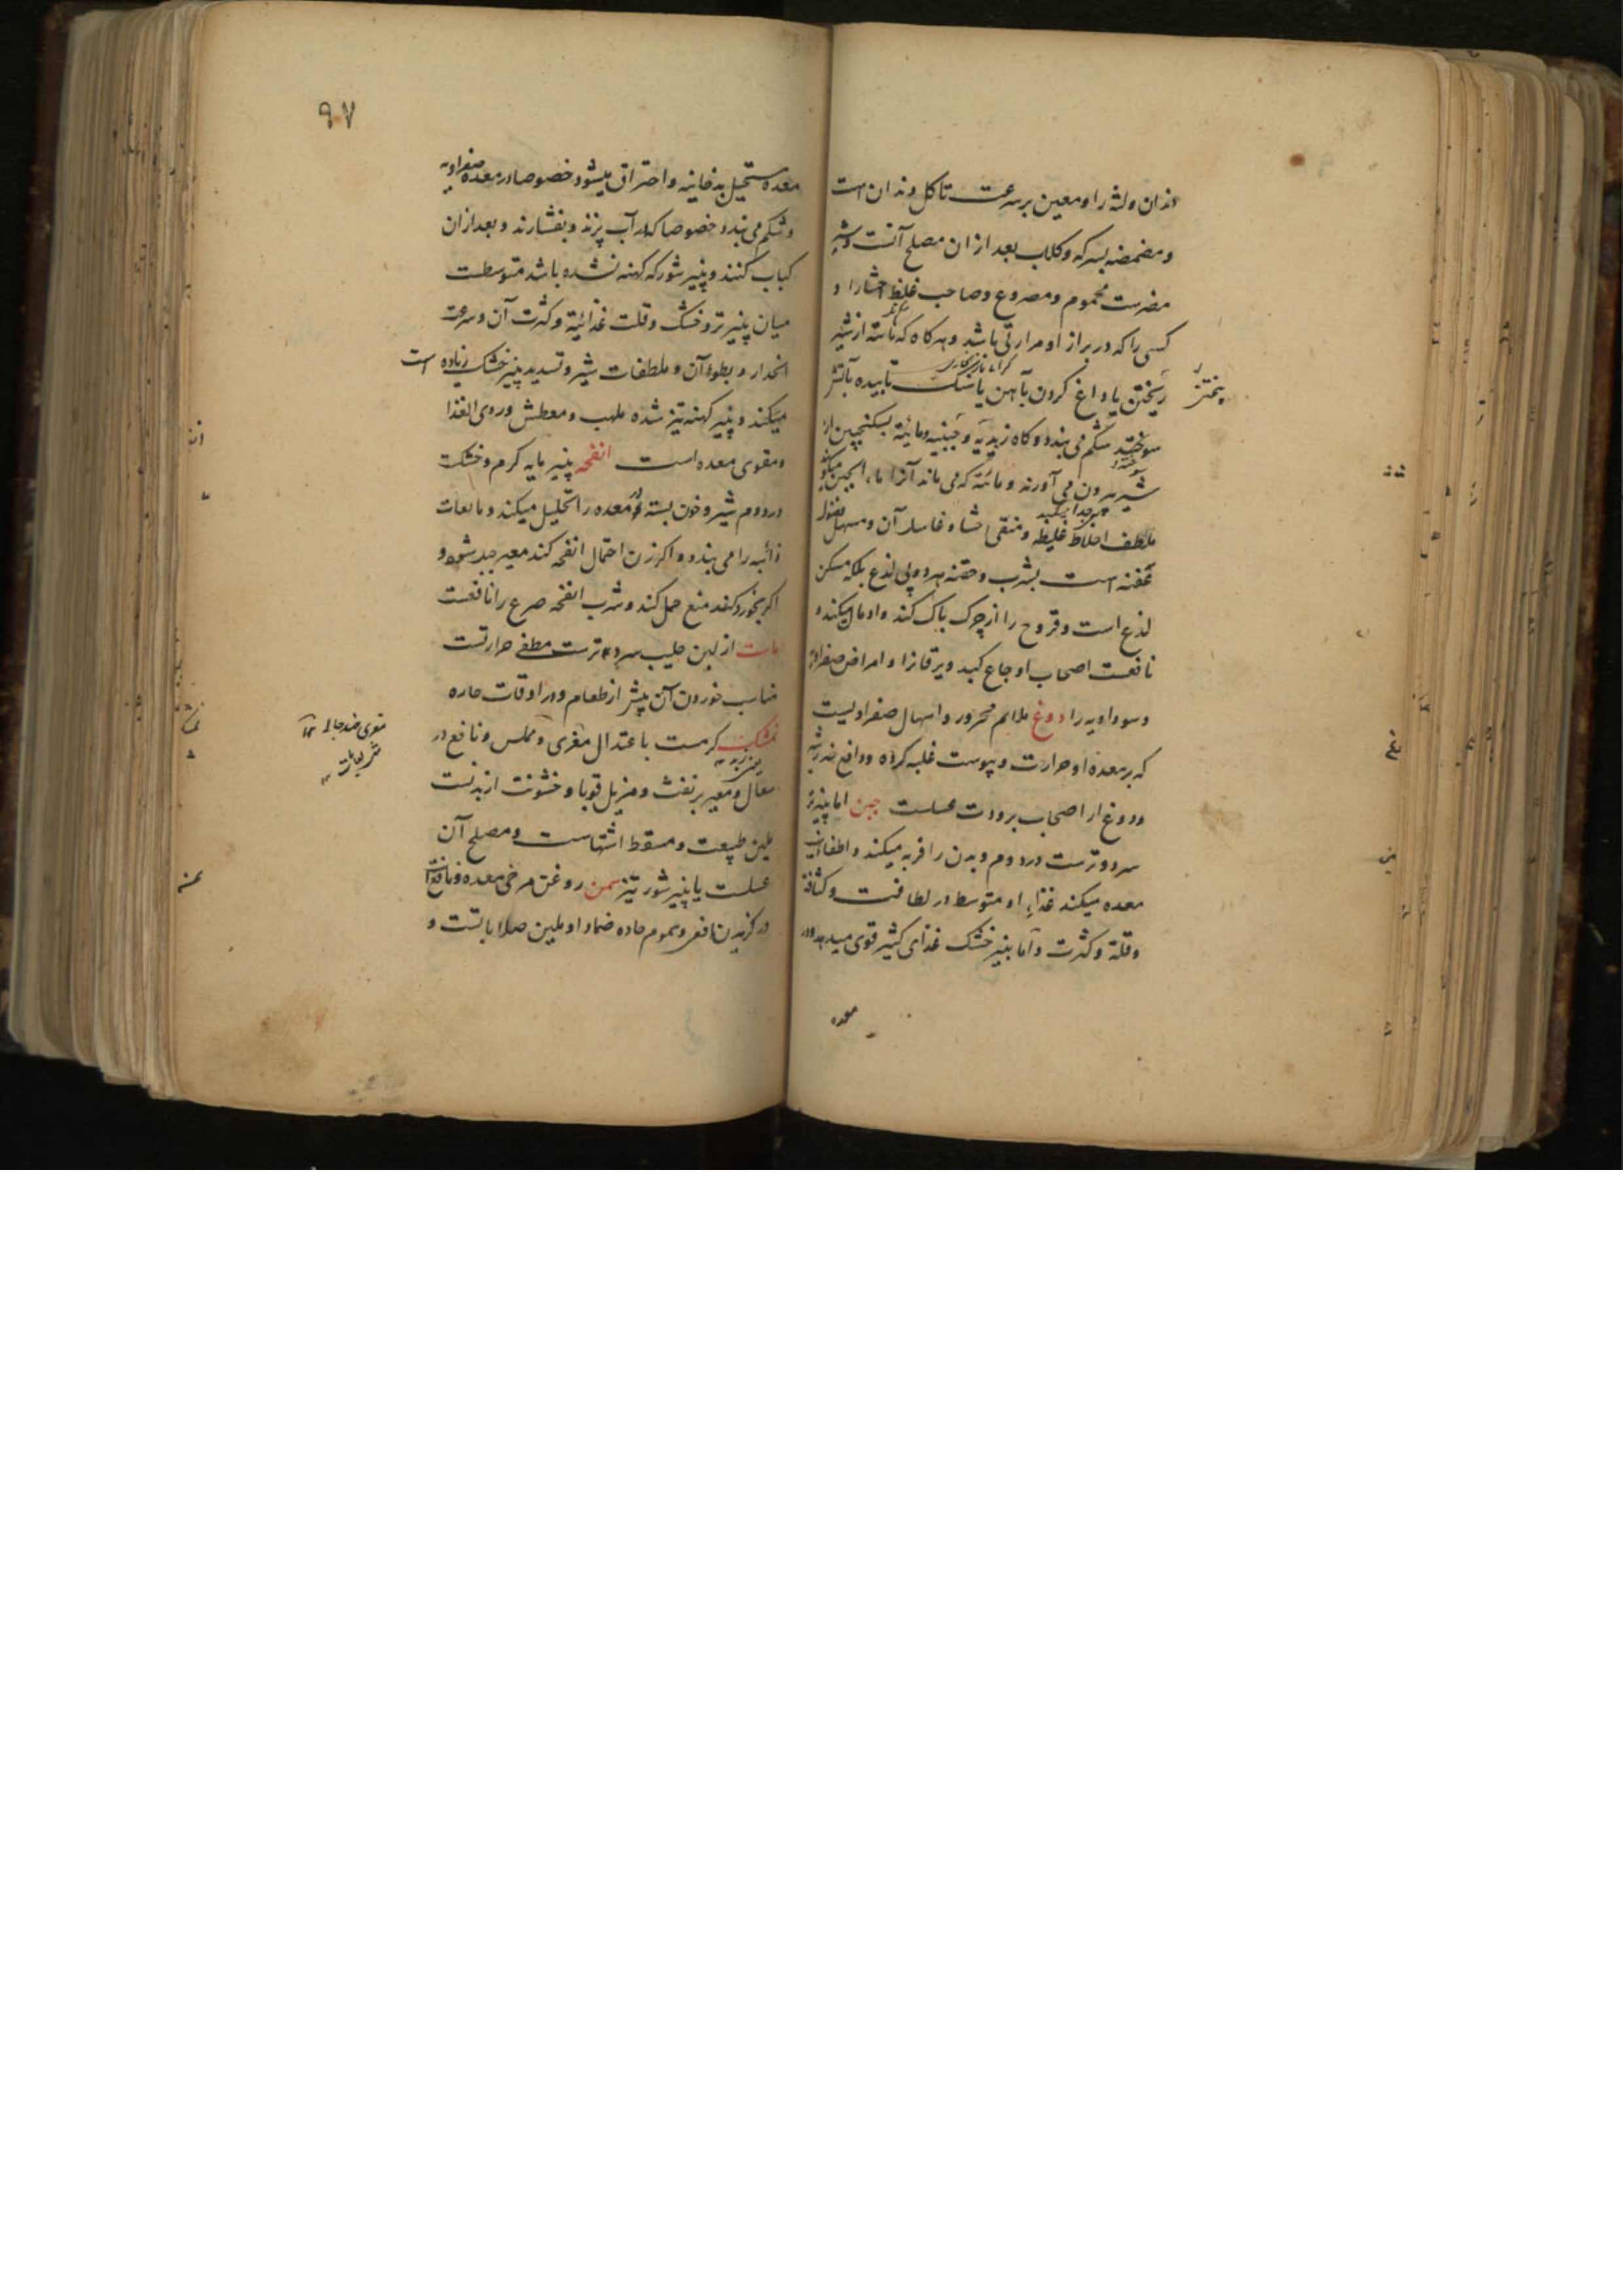 دندان ولثه را و معین بر سرعت تاکل دندان است
و مضمضه بسرکه و کلاب بعد ازان مصلح آنست و شیر
مضرست محموم و مصروع و صاحب غلظ احشا را و
کسی را که در براز او مرارتی باشد و هرکاه که مائیته از شیر
ریختن یا داغ کردن بآهن یا سنک تابیده بآتش
پختن
سوختند شکم می بندد و کاه زبدیه و جبنیه و مائیته بسکنجبین از
شیر بیرون می آورند و مائیته که می ماند آنرا ماء الجبن میکویند
ملطف اخلاط غلیظه و منقی احشا و غاسل آن و مسهل فضول
عفنه است بشرب و حقنه هر دو بی لذع بلکه مسکن
لذع است و قروح را از چرک پاک کند و ادمال میکند و
نافعست اصحاب اوجاع کبد و یرقانرا و امراض صفراویه
و سوداویه را دوغ ملایم محرور و اسهال صفراویست
که بر معده او حرارت و یبوست غلبه کرده و دافع ضرر
دوغ از اصحاب برودت عسلست جبن اما پنیر تر
سرد و ترست در دوم و بدن را فربه میکند و اطفاء
معده میکند غذاء او متوسط در لطافت و کثافة
و قلة و کثرت و اما پنیر خشک غذای کثیر قوی میدهد و در
معده
۹۷
معده مستحیل بدخانیه و احتراق میشود خصوصا در معده صفراویه
و شکم می بندد خصوصا که در آب پزند و بفشارند و بعد ازان
کباب کنند و پنیر شور که کهنه نشده باشد متوسطست
میان پنیر تر و خشک و قلت غذائیة و کثرت آن و سرعت
انحدار و بطوء آن و ملطفات شیر و تسدید پنیر خشک زیاده است
میکند و پنیر کهنه تیز شده ملهب و معطش و ردی الغذا
و مقوی معده است انفحه پنیر مایه کرم و خشکست
در دوم شیر و خون بسته در معده را تحلیل میکند و مایعات
ذائبه را می بندد و اکر زن احتمال انفحه کند معین حبل شود و
اکر بخورد کند منع حمل کند و شرب انفحه صرع را نافعست
ماست از لبن حلیب سرد و ترست مطفی حرارتست
مناسب خوردن آن پیش از طعام و در اوقات حاره
نمشک کرمست باعتدال مغری و مملس و نافع در
سعال و معین بر نفث و مزیل قوبا و خشونت از بدنست
ملین طبیعت و مسقط اشتهاست و مصلح آن
عسلست یا پنیر شور تیز سمن روغن مرخی معده و نافع
در کزیدن افعی و سموم حاره ضماد او ملین صلاباتست و